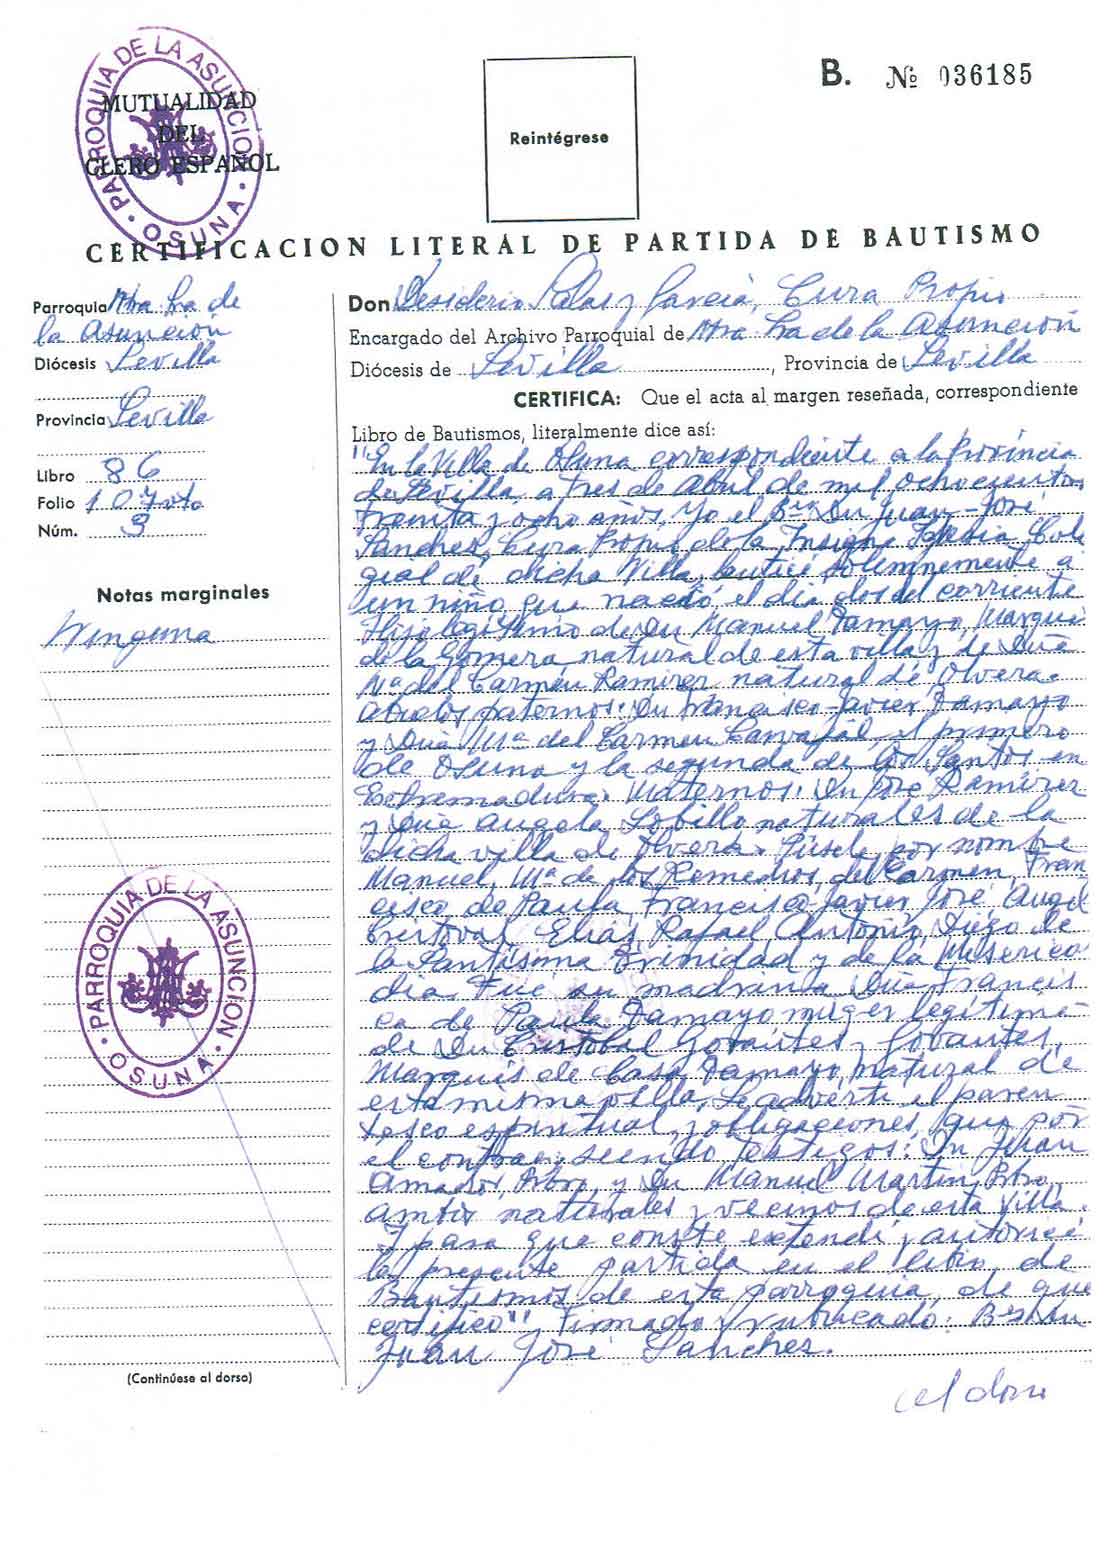 PARROQUIA DE LA ASUNCION · OSUNA ·
MUTUALIDAD
DEL
CLERO ESPAÑOL
Reintégrese
B. Nº 036185
CERTIFICACION LITERAL DE PARTIDA DE BAUTISMO
Parroquia Ntra. Sra. de
la Asunción
Diócesis Sevilla
Provincia Sevilla
Libro 86
Folio 107 vto
Núm. 3
Notas marginales
Ninguna
PARROQUIA DE LA ASUNCION · OSUNA ·
(Continúese al dorso)
Don Desiderio Salas y García, Cura Propio
Encargado del Archivo Parroquial de Ntra. Sra de la Asunción
Diócesis de Sevilla, Provincia de Sevilla
CERTIFICA: Que el acta al margen reseñada, correspondiente
Libro de Bautismos, literalmente dice así:
"En la Villa de Osuna correspondiente a la Provincia
de Sevilla, a tres de Abril de mil ochocientos
treinta y ocho años, Yo el Dn Juan-José
Sanches, Cura Propio de la Insigne Iglesia Cole
gial de dicha Villa, bauticé solemnemente a
un niño que nació el día dos del corriente
Hijo legítimo de Dn Manuel Tamayo, Marqués
de la Gomera natural de esta villa y de Dña
Mª del Carmen Ramirez natural de Olvera.
Abuelos paternos: Dn Francisco-Javier Tamayo
y Dña Mª del Carmen Carvajal, el primero
de Osuna y la segunda de los Santos en
Extremadura. Maternos: Dn José Ramirez
y Dña Angela Lobillo naturales de la
dicha villa de Olvera. Púsele por nombre
Manuel, Mª de los Remedios, del Carmen, Fran
cisco de Paula, Francisco-Javier, José, Angel
Cristoval, Elías, Rafael, Antonio, Diego de
la Santísima Trinidad y de la Misericor
dia. Fue su madrina Dña Francis
ca de Paula Tamayo muger legítima
de Dn Cristobal Govantes y Govantes,
Marqués de Casa Tamayo, natural de
esta misma villa, le advertí el paren
tesco espiritual y obligaciones, que por
él contrae, siendo testigos: Dn Juan
Amador, Pbro, y Dn Manuel Martin, Pbro,
ambos naturales y vecinos de esta Villa.
Y para que conste extendí y autoricé
la presente partida en el libro de
Bautismos de esta parroquia, de que
certifico", Firmado y rubricado:
Juan José Sanches.
al dorso